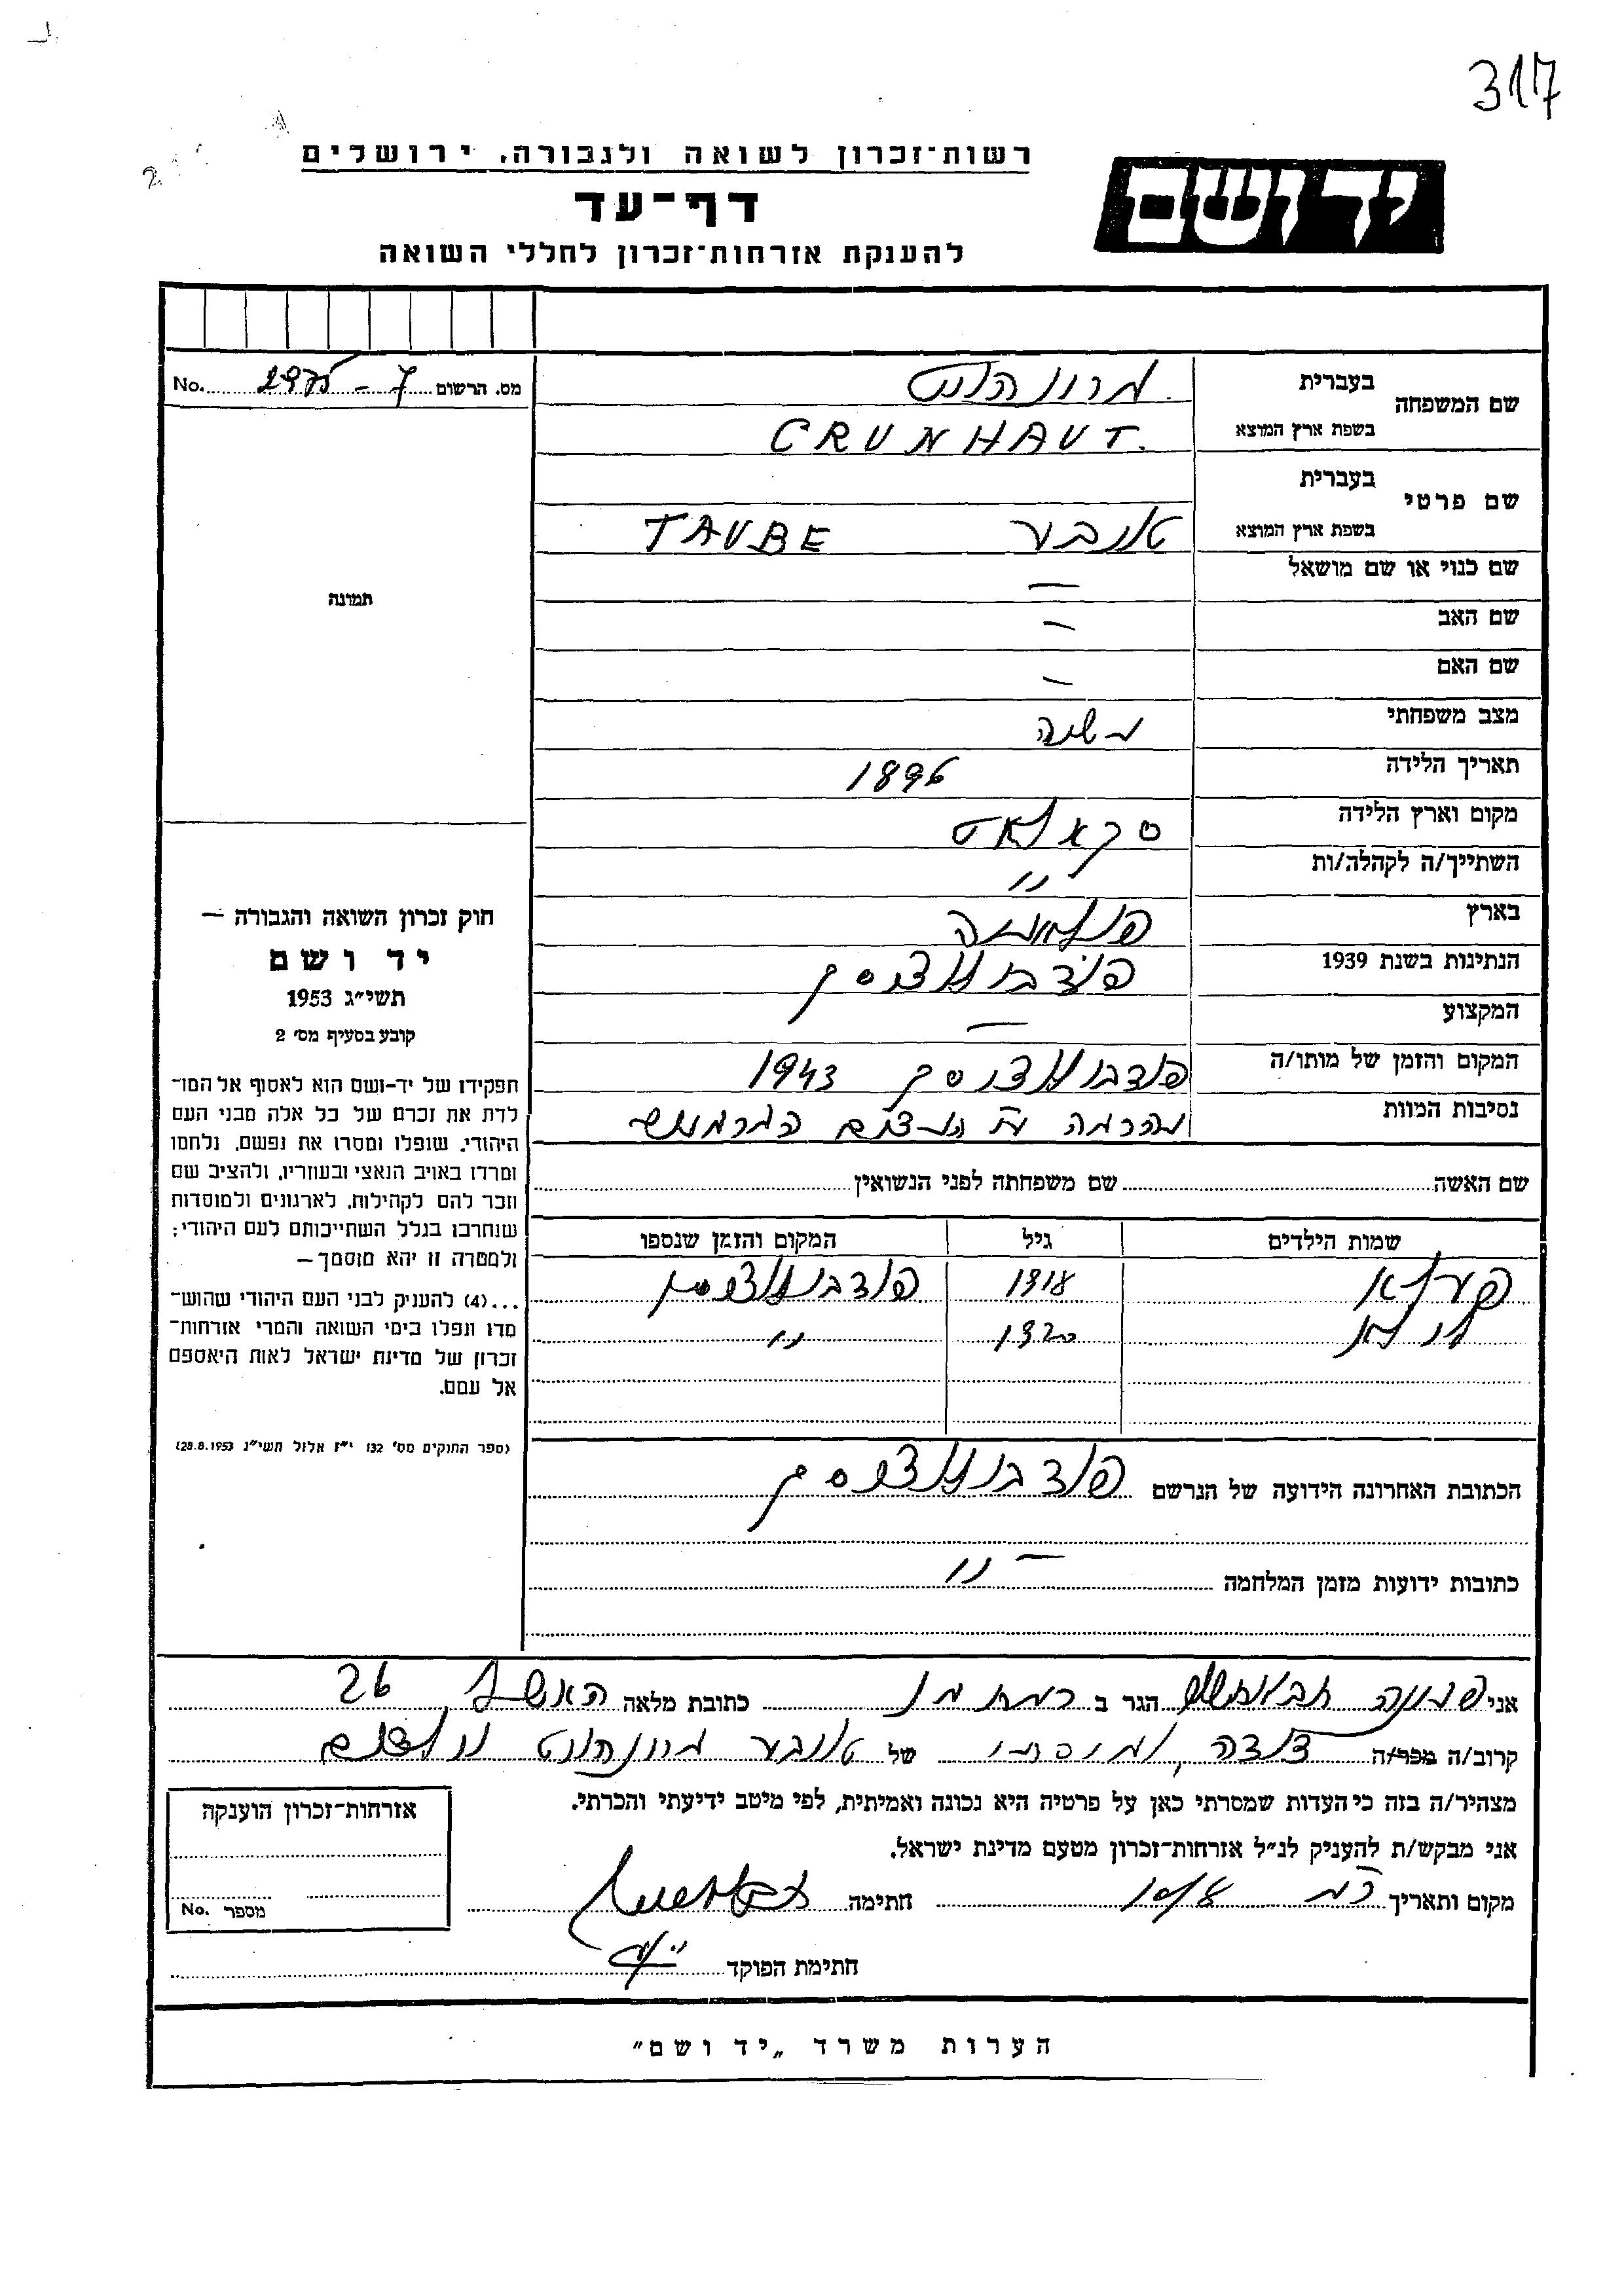 317
רשות־זכרון לשואה ולגבורה, ירושלים
ידושם
דף־עד
להענקת אזרחות־זכרון לחללי השואה
שם המשפחה
בעברית גרונהוט
בשפת ארץ המוצא GRUNHAUT.
מס. הרשום No.
שם פרטי
בעברית
בשפת ארץ המוצא טובע TAUBE
תמונה
שם כנוי או שם מושאל —
שם האב —
שם האם —
מצב משפחתי נשואה
תאריך הלידה 1896
מקום וארץ הלידה סקאלאט
השתייך/ה לקהלה/ות "
בארץ פולאניה
הנתינות בשנת 1939 פודבולוצ'יסק
המקצוע —
המקום והזמן של מותו/ה פודבולוצ'יסק 1943
נסיבות המוות
שם האשה שם משפחתה לפני הנשואין
שמות הילדים גיל המקום והזמן שנספו
פערלא 1918 פודבולוצ'יסק
1920 "
הכתובת האחרונה הידועה של הנרשם פודבולוצ'יסק
כתובות ידועות מזמן המלחמה — "
חוק זכרון השואה והגבורה —
יד ושם
תשי״ג 1953
קובע בסעיף מס׳ 2
תפקידו של יד-ושם הוא לאסוף אל המו־
לדת את זכרם של כל אלה מבני העם
היהודי, שנפלו ומסרו את נפשם, נלחמו
ומרדו באויב הנאצי ובעוזריו, ולהציב שם
וזכר להם לקהילות, לארגונים ולמוסדות
שנחרבו בגלל השתייכותם לעם היהודי;
ולמטרה זו יהא מוסמך —
...(4) להעניק לבני העם היהודי שהוש־
מדו ונפלו בימי השואה והמרי אזרחות־
זכרון של מדינת ישראל לאות היאספם
אל עמם.
(ספר החוקים מס׳ 132 י״ז אלול תשי״ג 28.8.1953)
אני פנינה הגר ב רמת גן כתובת מלאה 26
קרוב/ה מכר/ה דודה של טובע גרונהוט
מצהיר/ה בזה כי העדות שמסרתי כאן על פרטיה היא נכונה ואמיתית, לפי מיטב ידיעתי והכרתי.
אני מבקש/ת להעניק לנ״ל אזרחות־זכרון מטעם מדינת ישראל.
מקום ותאריך חתימה
חתימת הפוקד
אזרחות־זכרון הוענקה
מספר No.
הערות משרד „יד ושם״